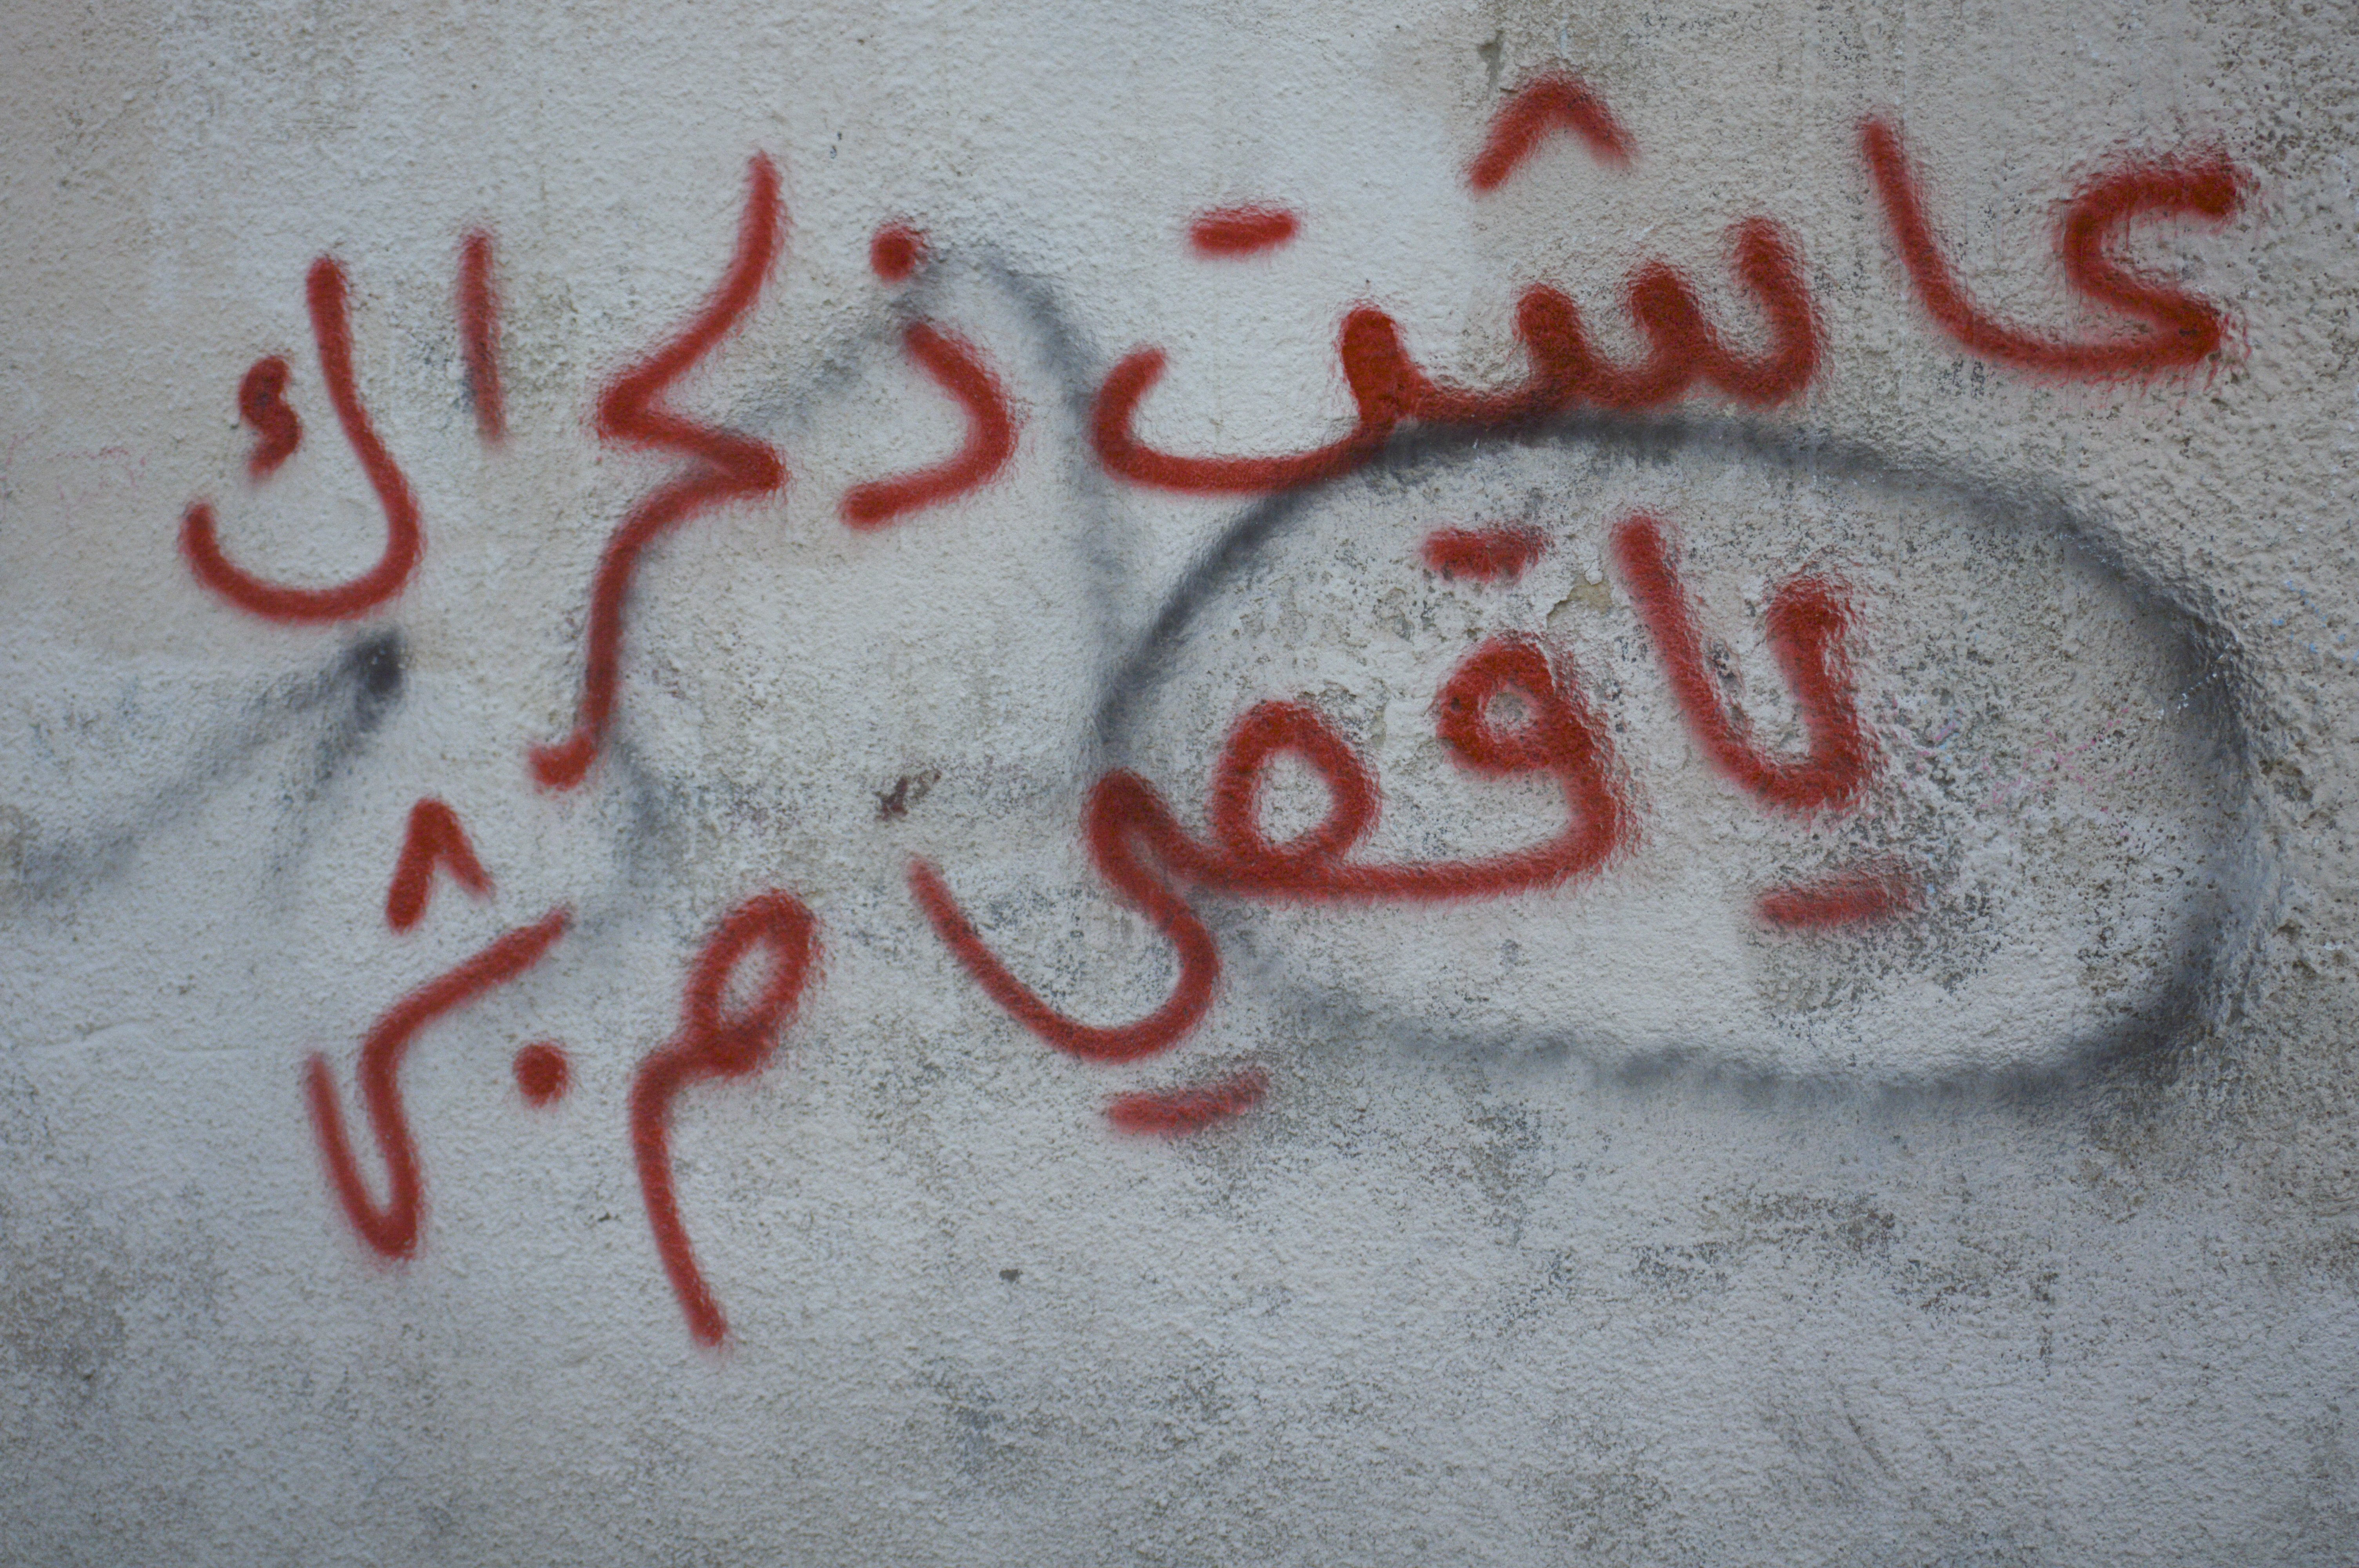 عاشت ذكراك
يا قصي